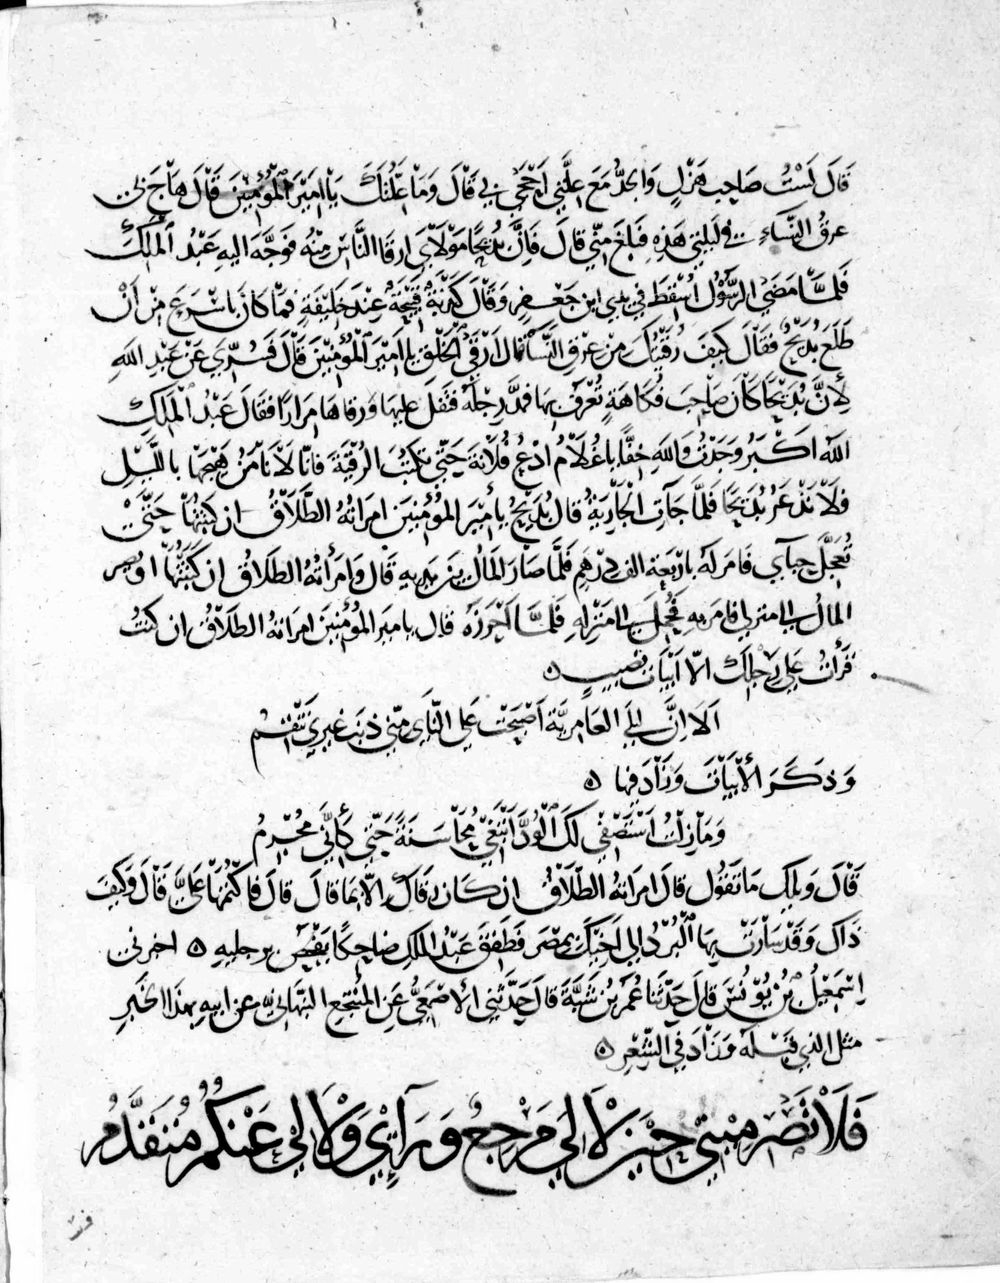 قَالَ لَسْتُ صَاحِبَ هَزْلٍ وَالجِدُّ مَعَ عِلَّتِي أَحْجَى بِي قَالَ وَمَا عِلَّتُكَ يَا أَمِيرَ المُؤْمِنِينَ قَالَ هَاجَ بِي
عرقُ النَّسَاءِ في لَيلتي هَذِهِ فبَلَغ مِنّي قالَ فَإنَّ بُدَيْحًا مَوْلَايَ ارقَا النَّاسِ مِنْهُ فوَجَّهَ اليهِ عَبْدُ المَلِكِ
فَلمَّا مَضَى الرَّسُولُ أُسْقِطَ فِي يدي ابن جَعْفَرٍ وَقَالَ كَذْبَةٌ قَبِيحَةٌ عِنْدَ خَلِيفَةٍ فمَا كانَ بِاسْرَعَ مِنْ أَنْ
طَلَعَ بُدَيْحٌ فَقَالَ كَيفَ رُقْيَتُكَ مِنْ عِرْقِ النَّسَا قَالَ أَرْقَى الخَلْقِ يا أَمِيرَ المُؤْمِنِينَ قَالَ فَسُرِّيَ عَنْ عَبْدِ اللهِ
لِأَنَّ بُدَيْحًا كَانَ صَاحِبَ فُكَاهَةٍ يُعْرَفُ بِهَا فمَدَّ رِجْلَهُ فَتَفَلَ عليهَا وَرقاهَا مِرَارًا فقالَ عَبْدُ المَلِكِ
اللّٰهُ أَكْبَرُ وَجَدْتُ وَاللهِ خِفًّا يا غُلَامُ ادْعُ فُلَانَةَ حَتَّى تكتُبَ الرُّقْيَةَ فانّا لَا نَأمَنُ هَيْجَهَا باللَّيْلِ
فَلَا نَذْعَرُ بُدَيحًا فَلَمَّا جَآتِ الجَارِيَةُ قالَ بُدَيْحٌ يا أَمِيرَ المُؤْمِنِينَ امرَاتُهُ الطَّلَاقُ ان كتبَتْهَا حَتَّى
تُعَجِّلَ حِبَآيِ فَامَرَ لَهُ بِاَرْبَعَةِ الف دِرْهَمٍ فَلمَّا صَارَ المَالُ بَيْنَ يَدَيهِ قَالَ وَامْرَأتُهُ الطلَاقُ ان كتَبَتْهَا او يصِيرَ
المالُ الى منزلي فامَرَ بهِ فَحُمِلَ الى مَنْزِلِهِ فَلمَّا أَحْرَزَهُ قالَ يا مِيرَ المُؤْمِنِينَ امرَاتهُ الطَّلَاقُ ان كنتُ
قَرَأْتُ عَلى رِجْلِكَ الّا ابْيَاتَ نُصَيْبٍ ۞
اَلَا انَّ لَيْلَى العَامِرِيَّةَ أَصْبَحَتْ عَلى النَّايِ مِنّي ذَنْبَ غيري تَنْقِمُ
وَذكَرَ الأَبْيَاتَ وَزَادَ فِيهَا ۞
وَمَا زِلْتُ أَسْتَصْفِي لَكِ الْوُدَّ أَبْتَغِي مُحَاسَنَةً حَتّى كَأَنِّي مُجْرِمُ
قَالَ وَيلكَ مَا تقُول قالَ امرَاتهُ الطَّلَاقُ ان كَانَ رَقَاكَ الّا بِمَا قالَ قالَ فاكْتُمْهَا عَليَّ قَالَ وَكَيْفَ
ذَاكَ وَقَدْ سَارَتْ بِهَا الْبُرُدُ إلى أَخِيكَ بِمِصْرَ فَطَفِقَ عَبْدُ المَلِكِ ضاحِكًا يَفْحَصُ برجليهِ ۞ اخبرني
إسْمَعِيلُ بْنُ يُوْنُسَ قالَ حَدّثَنا عُمَرُ بْنُ شَبَّةَ قالَ حَدَّثَنِي الأَصْمَعِيُّ عَنِ المُنْتَجِعِ النَّبْهَانِيِّ عن ابيهِ بهذَا الخَبَرِ
مثل الذي قَبْلَهُ وَزَادَ في الشِّعْرِ ۞
فَلَا تَصْرِمِيْنِي حِيْنَ لَا لِيَ مَرْجِعٌ وَرَآيِي وَلَا لِي عَنْكُمُ مُتَقَدَّمُ